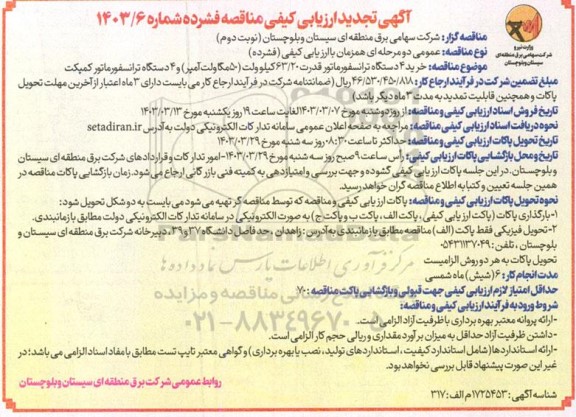 آگهی تجدید ارزیابی کیفی مناقصه فشرده شماره ۱۴۰۳/۶
وزارت نیرو
شرکت سهامی برق منطقه‌ای
سیستان و بلوچستان
مناقصه گزار: شرکت سهامی برق منطقه ای سیستان وبلوچستان (نوبت دوم)
نوع مناقصه: عمومی دو مرحله ای همزمان با ارزیابی کیفی (فشرده)
موضوع مناقصه: خرید ۴ دستگاه ترانسفورماتور قدرت ۶۳/۲۰ کیلوولت (۵۰ مگاولت آمپر) و ۴ دستگاه ترانسفورماتور کمپکت
مبلغ تضمین شرکت در فرآیند ارجاع کار: ۴۶/۵۳۰/۴۵۰/۸۱۸ ریال (ضمانتنامه شرکت در فرآیند ارجاع کار می بایست دارای ۳ ماه اعتبار از آخرین مهلت تحویل
پاکات و همچنین قابلیت تمدید به مدت ۳ ماه دیگر باشد)
تاریخ فروش اسناد ارزیابی کیفی و مناقصه: از روز دوشنبه مورخ ۱۴۰۳/۰۳/۰۷ لغایت ساعت ۱۹ روز یکشنبه مورخ ۱۴۰۳/۰۳/۱۳
نحوه دریافت اسناد ارزیابی کیفی و مناقصه: مراجعه به صفحه اعلان عمومی سامانه تدارکات الکترونیکی دولت به آدرس setadiran.ir
تاریخ تحویل پاکات ارزیابی کیفی و مناقصه: حداکثر تا ساعت ۰۸:۳۰ روز سه شنبه مورخ ۱۴۰۳/۰۳/۲۹
تاریخ و محل بازگشایی پاکات ارزیابی کیفی: رأس ساعت ۹ صبح روز سه شنبه مورخ ۱۴۰۳/۰۳/۲۹-امور تدارکات و قراردادهای شرکت برق منطقه ای سیستان
وبلوچستان. در این جلسه پاکات ارزیابی کیفی گشوده و جهت بررسی و امتیازدهی به کمیته فنی بازرگانی ارجاع می شود. زمان بازگشایی پاکات مناقصه در
همین جلسه تعیین و کتبا به اطلاع مناقصه گران خواهد رسید.
نحوه تحویل پاکات ارزیابی کیفی و مناقصه: پاکات ارزیابی کیفی و مناقصه که توسط مناقصه گر تهیه می شود می بایست به دو شکل تحویل شود:
۱-بارگذاری پاکات (پاکت ارزیابی کیفی، پاکت الف، پاکت ب و پاکت ج) به صورت الکترونیکی در سامانه تدارکات الکترونیکی دولت مطابق بازمانبندی.
۲-تحویل فیزیکی فقط پاکت (الف) مناقصه مطابق بازمانبندی به آدرس: زاهدان، حد فاصل دانشگاه ۳۷ و ۳۹، دبیرخانه شرکت برق منطقه ای سیستان و
بلوچستان، تلفن: ۰۵۴۳۱۱۳۷۰۴۹
تحویل پاکات به هر دو روش الزامیست
مدت انجام کار: ۶ (شش) ماه شمسی
حداقل امتیاز لازم ارزیابی کیفی جهت قبولی و بازگشایی پاکت مناقصه: ۷۰
شروط ورود به فرآیند ارزیابی کیفی و مناقصه:
-ارائه پروانه معتبر بهره برداری با ظرفیت آزاد الزامی است.
-داشتن ظرفیت آزاد حداقل به میزان برآورد مقداری و ریالی حجم کار الزامی است.
-ارائه استانداردها (شامل استاندارد کیفیت، استانداردهای تولید، نصب یا بهره برداری) و گواهی معتبر تایپ تست مطابق با مفاد اسناد الزامی می باشد؛ در
غیر این صورت پیشنهاد قابل بررسی نخواهد بود.
روابط عمومی شرکت برق منطقه ای سیستان وبلوچستان
شناسه آگهی: ۱۷۲۵۴۵۳ م الف: ۳۱۷
ParsNamadData
مرکز فرآوری اطلاعات پارس نماد داده ها
۰۲۱-۸۸۳۴۹۶۷۰-۵